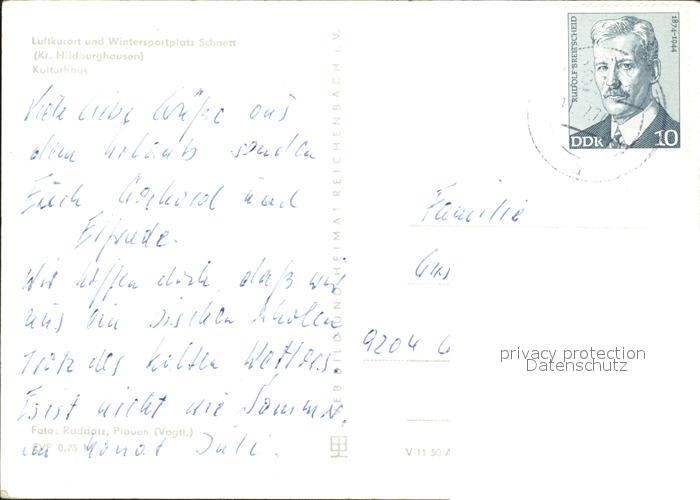 Luftkurort und Wintersportplatz Schnett
(Kr. Hildburghausen)
Kulturhaus
Viele liebe Grüße aus
dem Urlaub senden
Euch Gerhard und
Elfriede.
Wir hoffen doch, daß wir
uns ein bischen erholen
trotz des kalten Wetters.
Es ist nicht wie Sommer,
im Monat Juli.
Foto: Raddatz, Plauen (Vogtl.)
EVP 0,25
VEB BILD UND HEIMAT REICHENBACH i. V.
RUDOLF BREITSCHEID
1874-1944
DDR 10
Familie
9204
V 11 50 A
privacy protection
Datenschutz